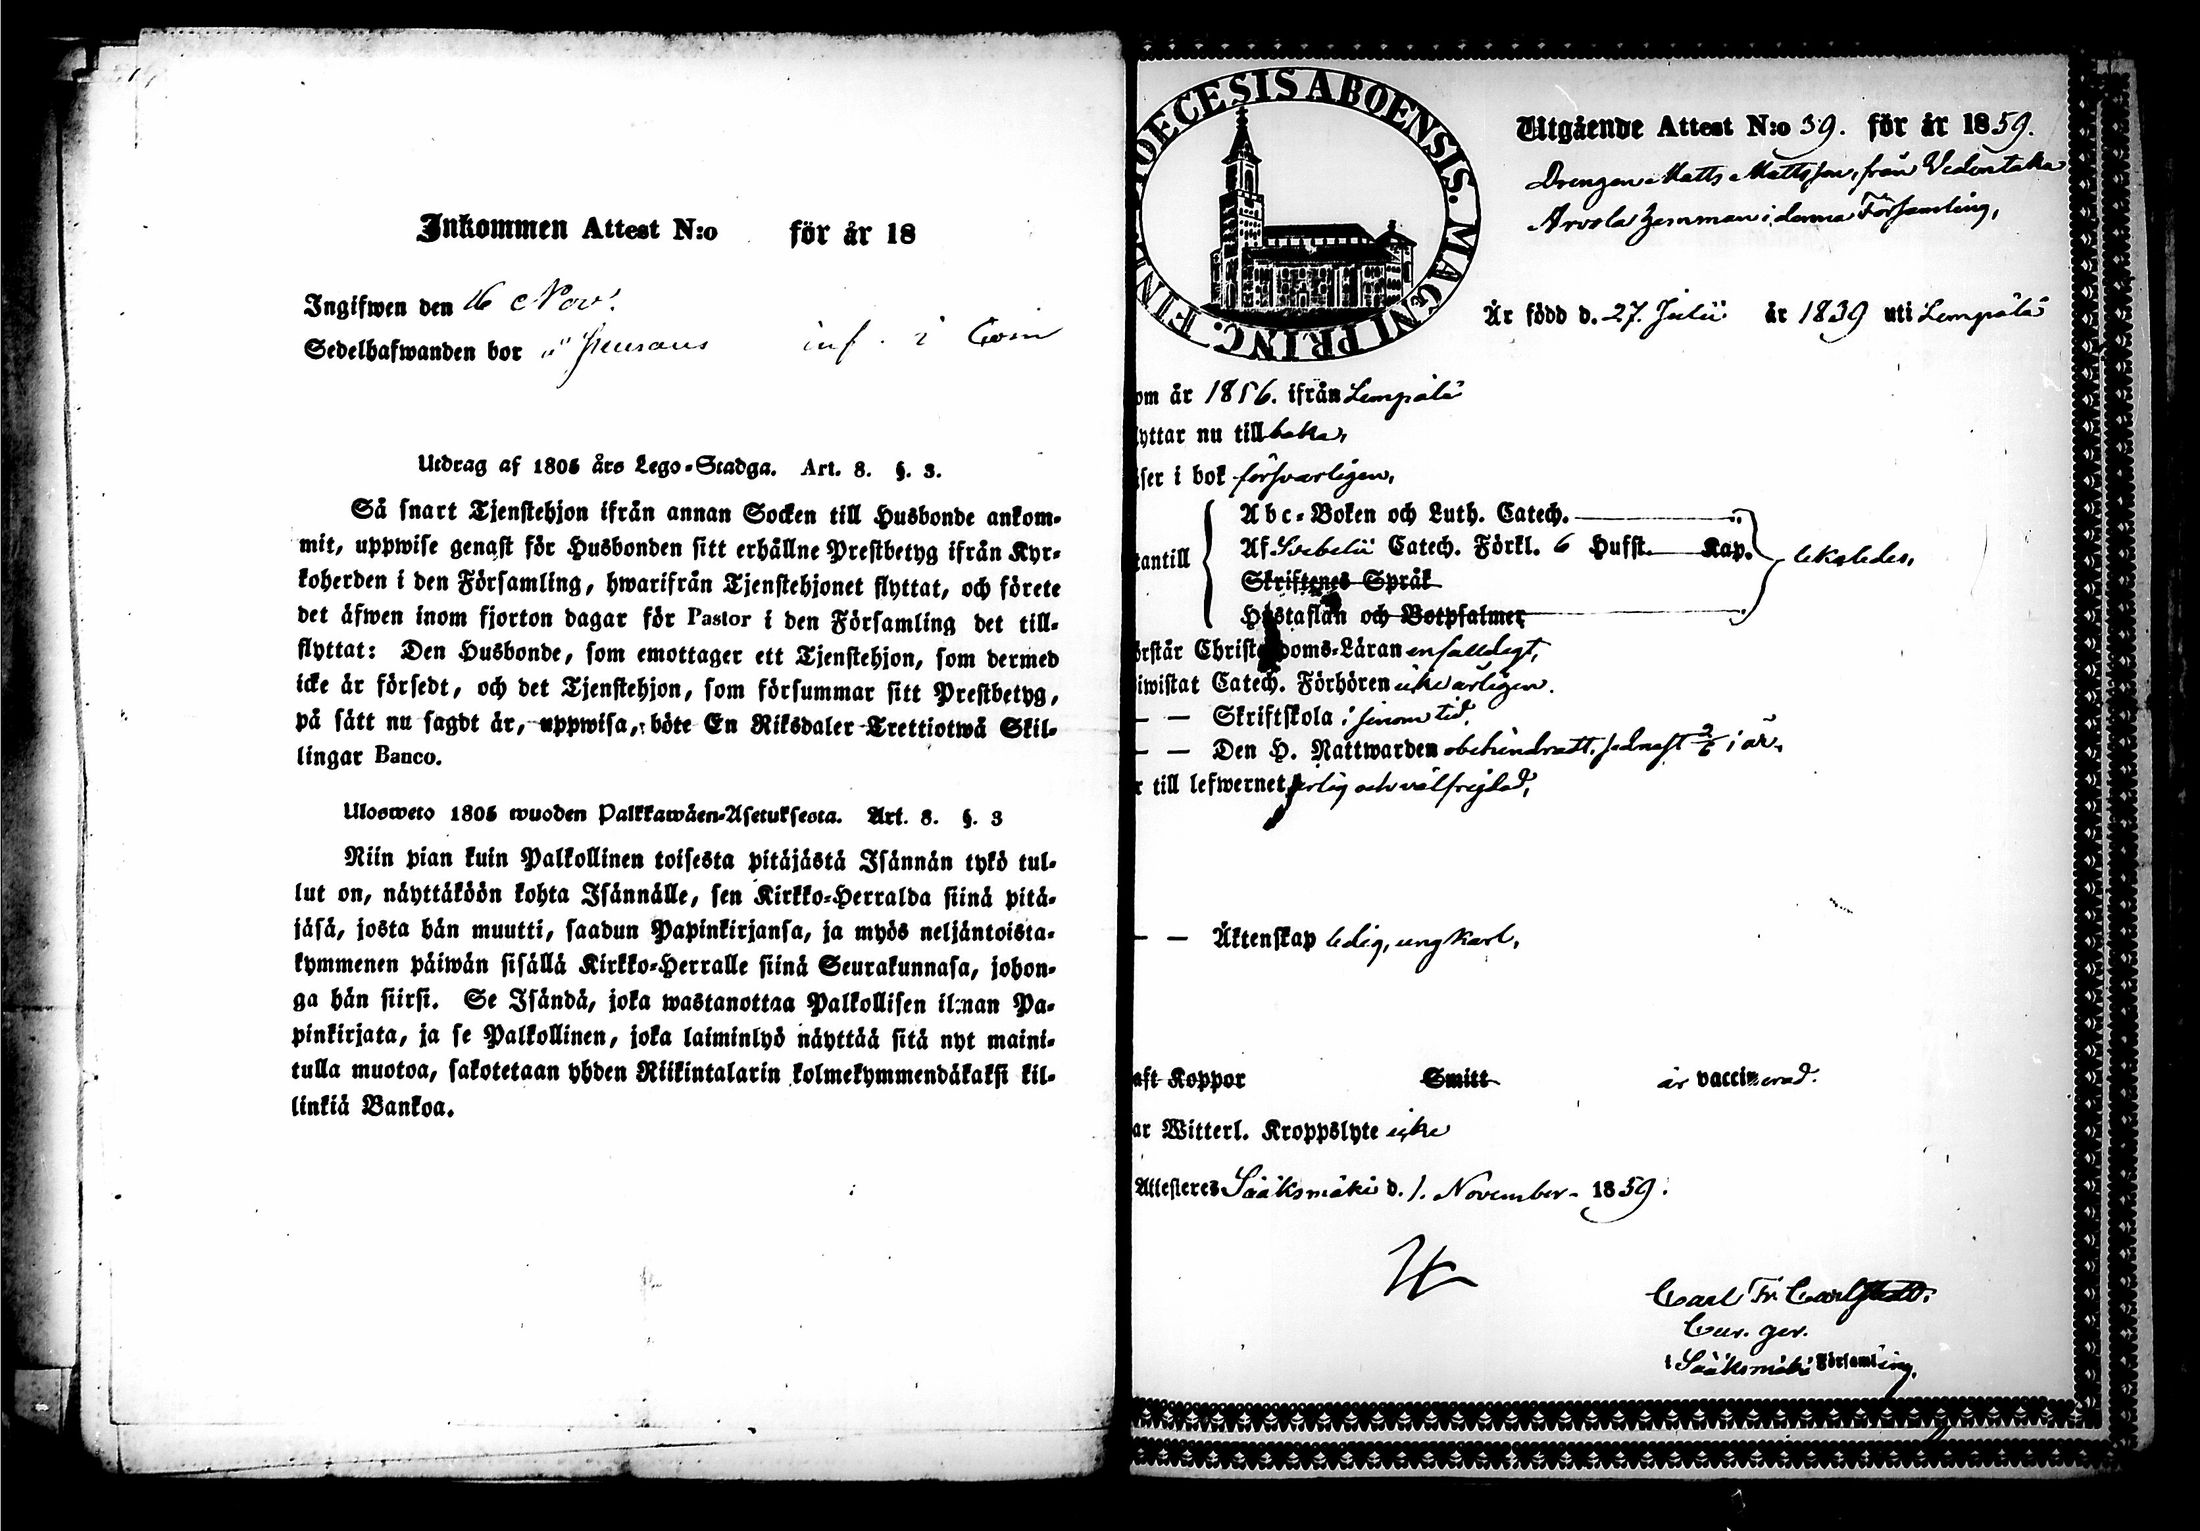 Inkommen Attest N:o för år 18
Ingifwen den 16 Nov.
Sedelhafwanden bor inh. i
Utdrag af 1805 års Lego-Stadga. Art. 8. §. 3.
Så snart Tjenstehjon ifrån annan Socken till Husbonde ankom-
mit, uppwise genast för Husbonden sitt erhållne Prestbetyg ifrån Kyr-
koherden i den Församling, hwarifrån Tjenstehjonet flyttat, och förete
det äfwen inom fjorton dagar för Pastor i den Församling det till-
flyttat: Den Husbonde, som emottager ett Tjenstehjon, som dermed
icke är försedt, och det Tjenstehjon, som försummar sitt Prestbetyg,
på sätt nu sagdt är, uppwisa, böte En Riksdaler Trettiotwå Skil-
lingar Banco.
Ulosweto 1805 wuoden Palkkawäen-Asetuksesta. Art. 8. §. 3
Niin pian kuin Palkollinen toisesta pitäjästä Isännän tykö tul-
lut on, näyttäköön kohta Isännälle, sen Kirkko-Herralda siinä pitä-
jäsä, josta hän muutti, saadun Papinkirjansa, ja myös neljäntoista-
kymmenen päiwän sisällä Kirkko-Herralle siinä Seurakunnasa, johon-
ga hän siirsi. Se Isändä, joka wastanottaa Palkollisen ilman Pa-
pinkirjata, ja se Palkollinen, joka laiminlyö näyttää sitä nyt maini-
tulla muotoa, sakotetaan yhden Riikintalarin kolmekymmendäkaksi kil-
linkiä Bankoa.
OECESIS ABOENSIS. MAGNI PRINC. FINL.
Utgående Attest N:o 39. för år 1859.
Drengen Matts Mattsson, från Vedentaka
Arvola hemman i denna Församling,
Är född d. 27. Julii år 1839 uti Lempälä
om år 1856. ifrån Lempälä
yttar nu tillbaka,
äser i bok försvarligen,
Abc-Boken och Luth. Catech.
Af Svebelii Catech. Förkl. 6 Hufst. Kap.
tantill
likaledes,
Skriftenes Språk
Hustaflan och Botpsalmer
örstår Christendoms-Läran enfaldigt,
iwistat Catech. Förhören icke årligen.
— — Skriftskola i sinom tid,
— — Den H. Nattwarden obehindradt, sednast 2/6 i år.
r till lefwernet ärlig och välfrejdad,
— — Äktenskap ledig, ung karl,
aft Koppor Smitt är vaccinerad.
ar Witterl. Kroppslyte icke
Attesteres Sääksmäki d. 1. November 1859.
Carl Fr. Carlstedt.
Cur. ger.
i Sääksmäki Församling,